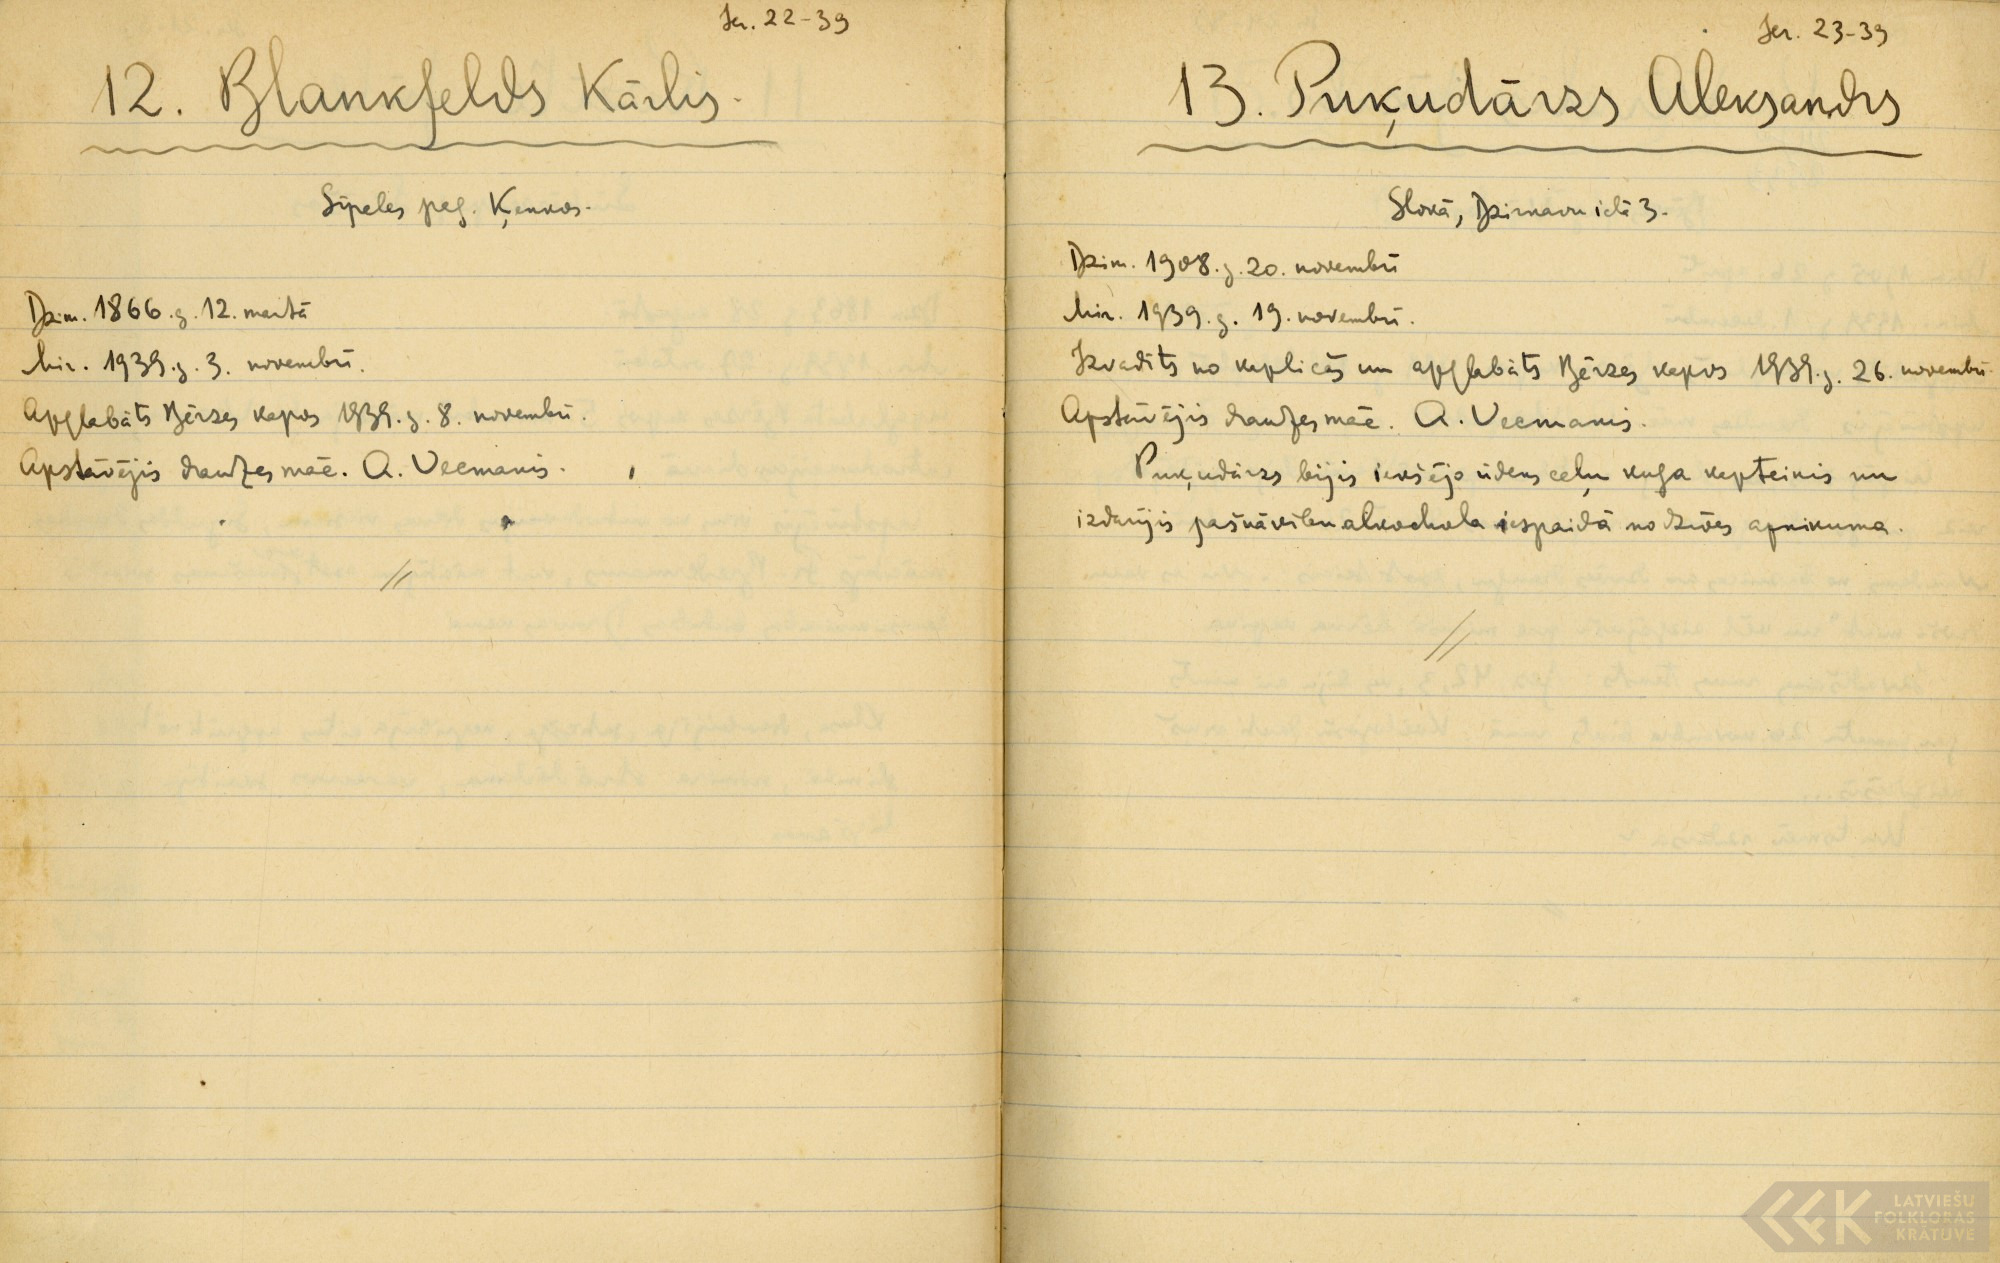 Ier. 22-39
12. Blankfelds Kārlis.
Sīpeles pag. Ķenkos.
Dzim. 1866.g. 12. martā
Mir. 1939.g. 3. novembrī.
Apglabāts Bērzes kapos 1939.g. 8. novembrī.
Apstāvējis draudzes māc. A. Vecmanis.
Ier. 23-39
13. Puķudārzs Aleksandrs
Slokā, Dzirnavu ielā 3.
Dzim. 1908.g. 20. novembrī
Mir. 1939.g. 19. novembrī.
Izvadīts no kapličas un apglabāts Bērzes kapos 1939.g. 26. novembrī.
Apstāvējis draudzes māc. A. Vecmanis.
Puķudārzs bijis iekšējo ūdens ceļu kuģa kapteinis un
izdarījis pašnāvību alkohola iespaidā no dzīves apnikuma.
LATVIEŠU
FOLKLORAS
KRĀTUVE